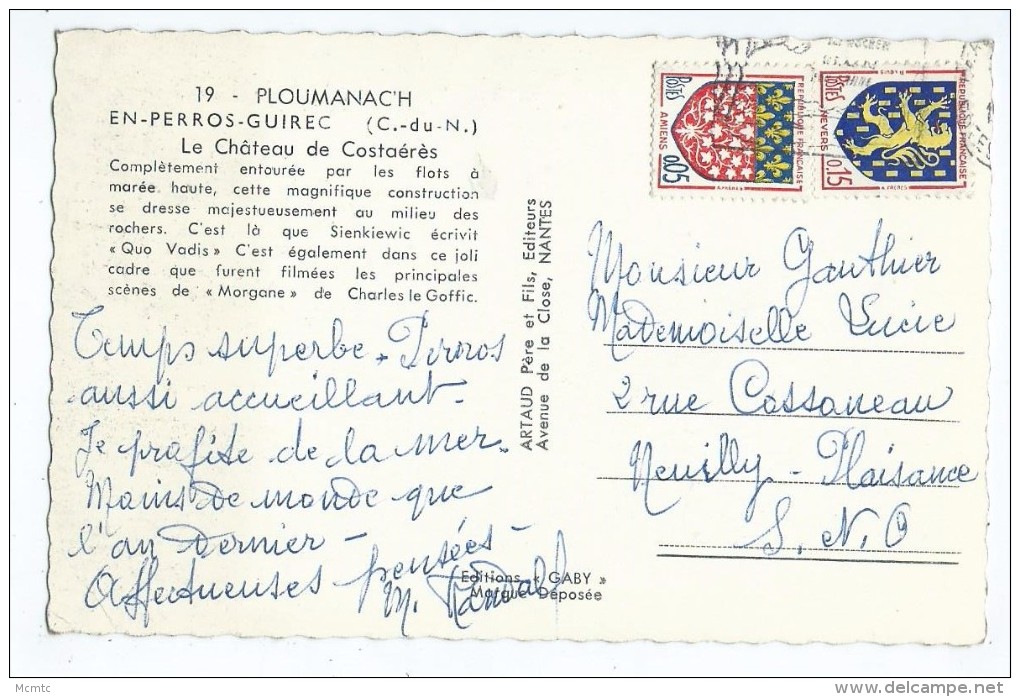 19 - PLOUMANAC'H
EN-PERROS-GUIREC (C.-du-N.)
Le Château de Costaérès
Complètement entourée par les flots à
marée haute, cette magnifique construction
se dresse majestueusement au milieu des
rochers. C'est là que Sienkiewic écrivit
« Quo Vadis » C'est également dans ce joli
cadre que furent filmées les principales
scènes de « Morgane » de Charles le Goffic.
Temps superbe. Perros
aussi accueillant.
Je profite de la mer.
Moins de monde que
l'an dernier -
Affectueuses pensées -
M.
Editions « GABY »
Marque Déposée
ARTAUD Père et Fils, Editeurs
Avenue de la Close, NANTES
POSTES
REPUBLIQUE FRANÇAISE
AMIENS
0,05
POSTES
REPUBLIQUE FRANÇAISE
NEVERS
0,15
Monsieur Gauthier
Mademoiselle Lucie
2 rue Cassaneau
Neuilly - Plaisance
S. N. O
Mcmtc
www.delcampe.net